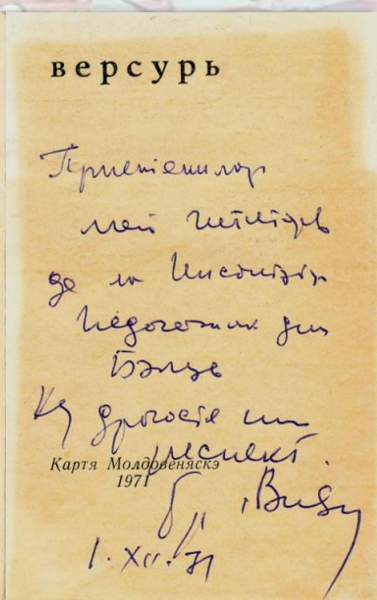 версурь
Приетенилор
мей
де ла Институтул
Педагожик дин
Бэлць
Ку драгосте ши
респект.
Картя Молдовеняскэ
1971
1. XII. 71